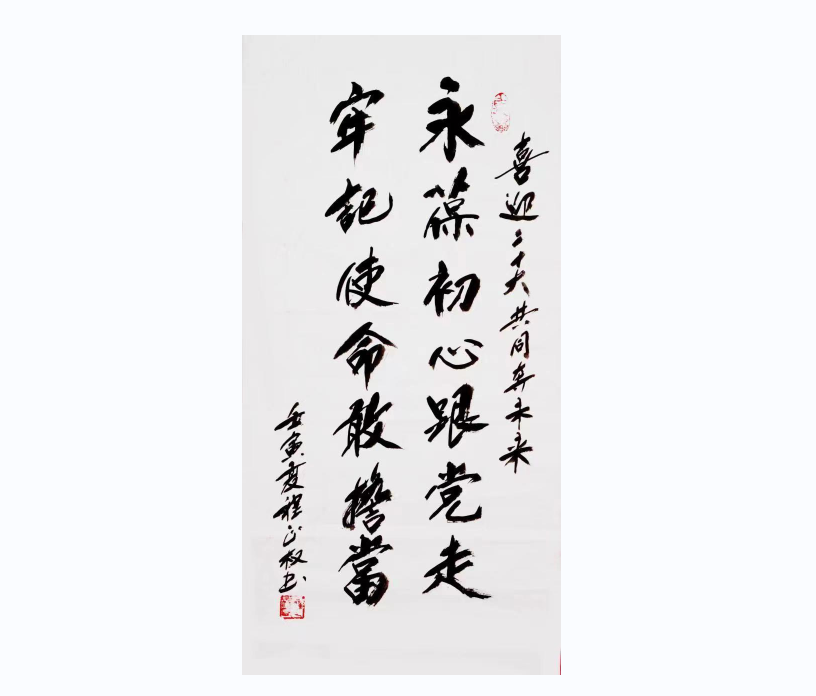 喜迎二十大共同奔未来
永葆初心跟党走
牢記使命敢擔當
壬寅夏程正权书